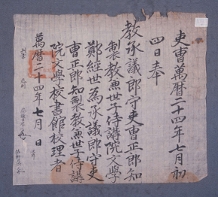 吏曹萬曆二十四年七月初
四日奉
教承議郎守吏曹正郎知
製教兼世子侍講院文學
鄭經世為承議郎守吏
曹正郎知製教兼世子侍講
院文學校書館校理者
萬曆二十四年七月 日